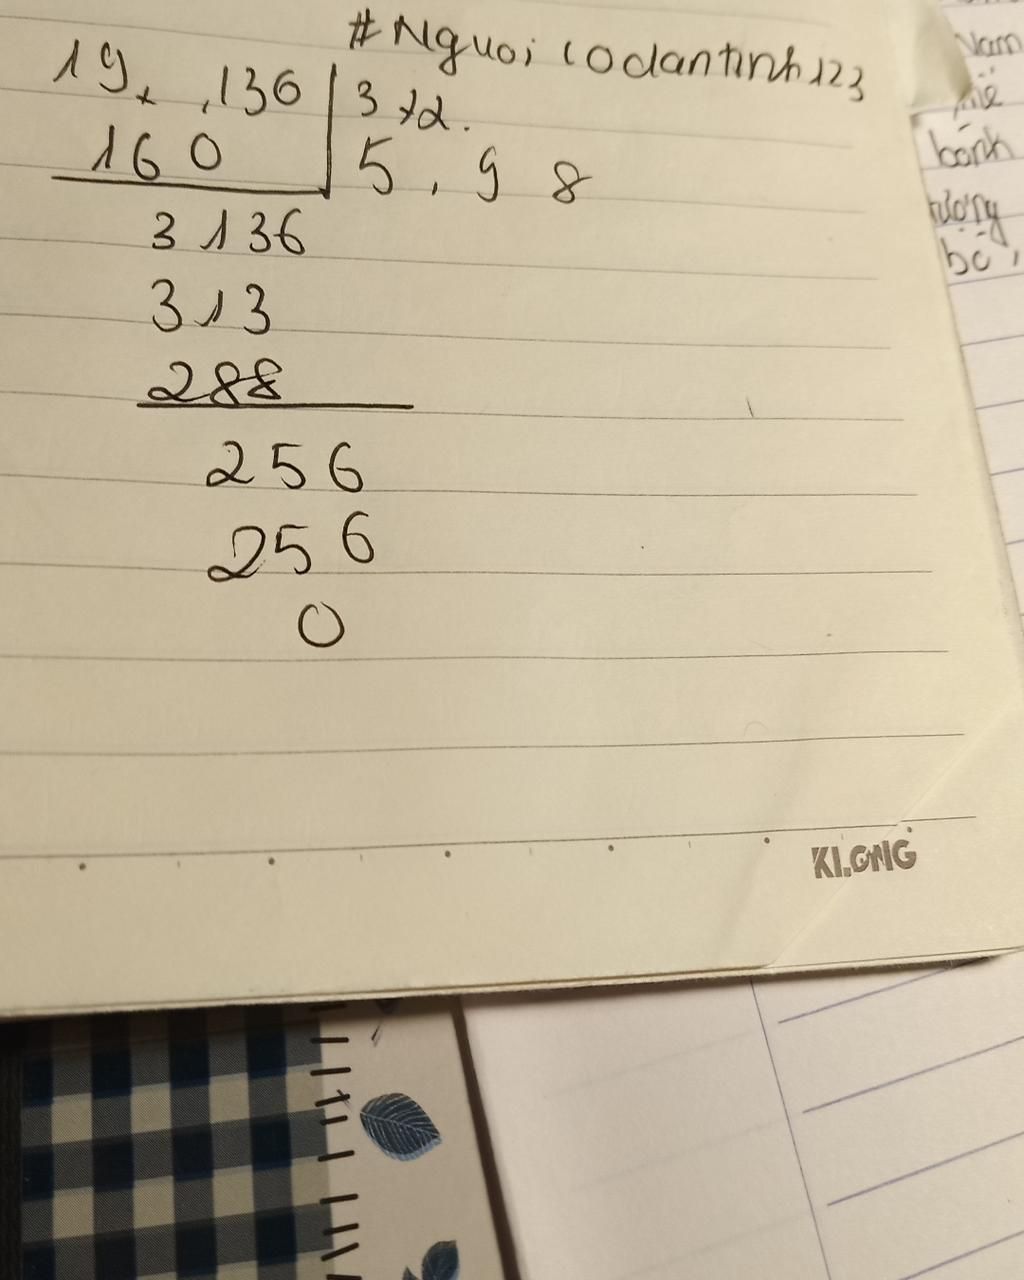 #Nguoi codantinh123
19,136 3,2.
160 5,98
3136
313
288
256
256
0
KLONG
Nam
bánh
bỏ,